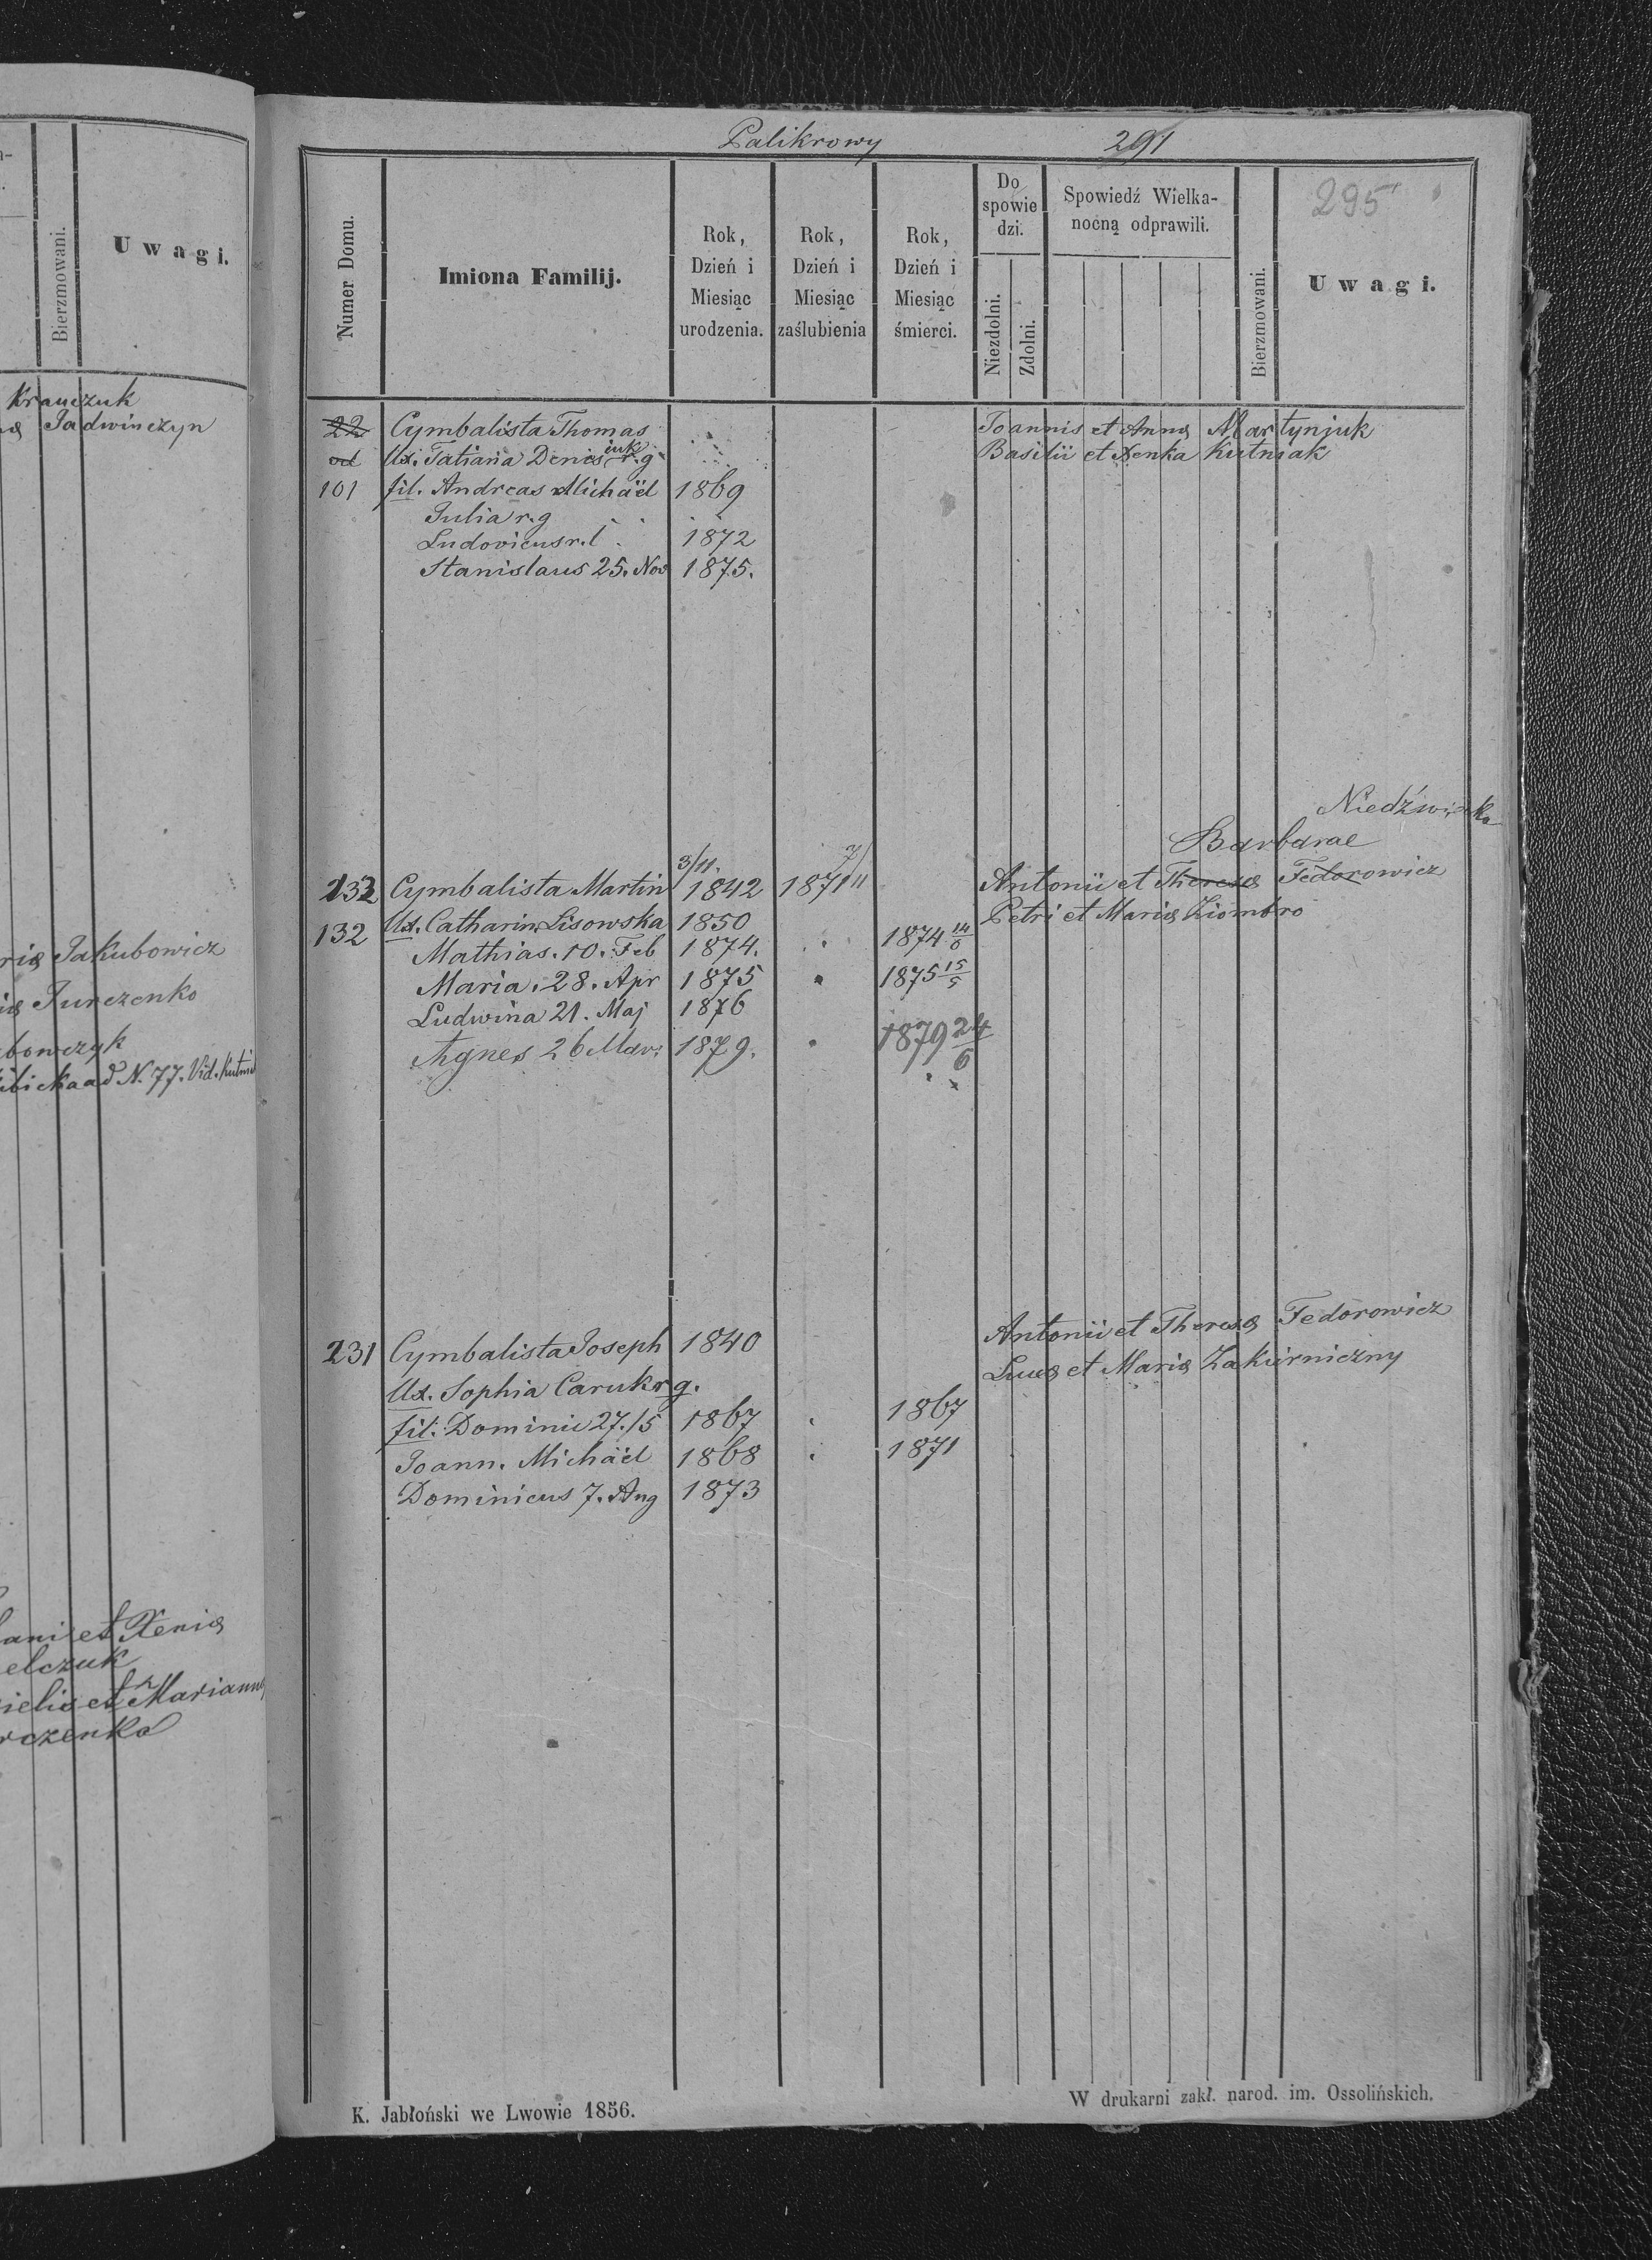 Bierzmowani.
Uwagi.
Krauczuk
Jadwinczyn
Jakubowicz
Jurczenko
ad N. 77. Vid.
et Xeniæ
elczuk
et Mariannæ
rczenko
Palikrowy 291
295
Numer Domu.
Imiona Familij.
Rok, Dzień i Miesiąc urodzenia.
Rok, Dzień i Miesiąc zaślubienia
Rok, Dzień i Miesiąc śmierci.
Do spowie dzi.
Niezdolni.
Zdolni.
Spowiedź Wielka-
nocną odprawili.
Bierzmowani.
Uwagi.
22 Cymbalista Thomas Joannis et Annæ Martynjuk
od Ux. Tatiana Denesiuk r. g Basilii et Xenka Kutniak
101 fil. Andreas Michaël 1869
Julia r. g
Ludovicus r. l 1872
Stanislaus 25. Nov 1875.
Niedźwiecka
Barbarae
3/11. 7/11
133 Cymbalista Martin 1842 1871 Antonii et Theresæ Fedorowicz
132 Ux. Catharin Lisowska 1850 Petri et Mariæ Ziombro
Mathias. 10. Feb 1874. 1874 14/6
Maria. 28. Apr 1875 1875 15/5
Ludwina 21. Maj 1876
Agnes 26 Mar. 1879. 1879 24/6
231 Cymbalista Joseph 1840 Antonii et Theresæ Fedorowicz
Ux. Sophia Caruk r g. Lucæ et Mariæ Zakirniczny
fil. Dominic 27./5 1867 1867
Joann. Michaël 1868 1871
Dominicus 7. Aug 1873
K. Jabłoński we Lwowie 1856.
W drukarni zakł. narod. im. Ossolińskich.